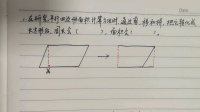 1.在研究平行四边形面积计算方法时,通过剪、移和拼,把它转化成
长方形后,周长会( ),面积会( )。